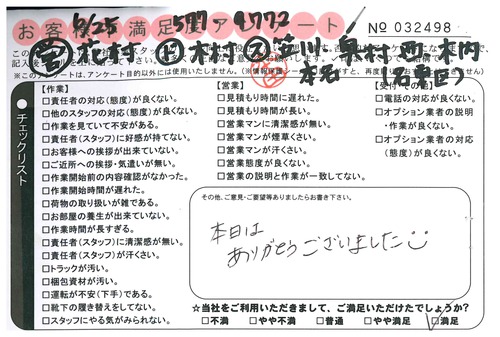 お客様満足度アンケート
9/25
577-9772
No 032498
チェックリスト
【作業】
□責任者の対応(態度)が良くない。
□他のスタッフの対応(態度)が良くない。
□作業を見ていて不安がある。
□責任者(スタッフ)に好感が持てない。
□お客様への挨拶が出来ていない。
□ご近所への挨拶・気遣いが無い。
□作業開始前の内容確認がなかった。
□作業開始時間が遅れた。
□荷物の取り扱いが雑である。
□お部屋の養生が出来ていない。
□作業時間が長すぎる。
□責任者(スタッフ)に清潔感が無い。
□責任者(スタッフ)が汗くさい。
□トラックが汚い。
□梱包資材が汚い。
□運転が不安(下手)である。
□靴下の履き替えをしてない。
□スタッフにやる気がみられない。
【営業】
□見積もり時間に遅れた。
□見積もり時間が長い。
□営業マンに清潔感が無い。
□営業マンが煙草くさい。
□営業マンが汗くさい。
□営業態度が良くない。
□営業の説明と作業が一致してない。
□電話の対応が良くない。
□オプション業者の説明
・作業が良くない。
□オプション業者の対応
(態度)が良くない。
その他、ご意見・ご要望等ありましたらお書き下さい。
本日は
ありがとうございました
☆当社をご利用いただきまして、ご満足いただけたでしょうか?
□不満 □やや不満 □普通 □やや満足 □満足